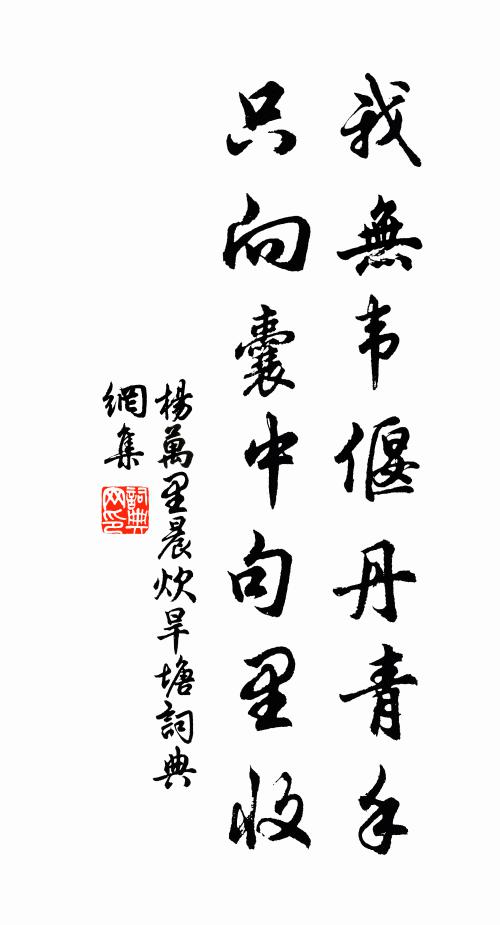 我無韦偃丹青手
只向囊中句里收
楊萬里晨炊旱塘詞典
網集
詞典
网印